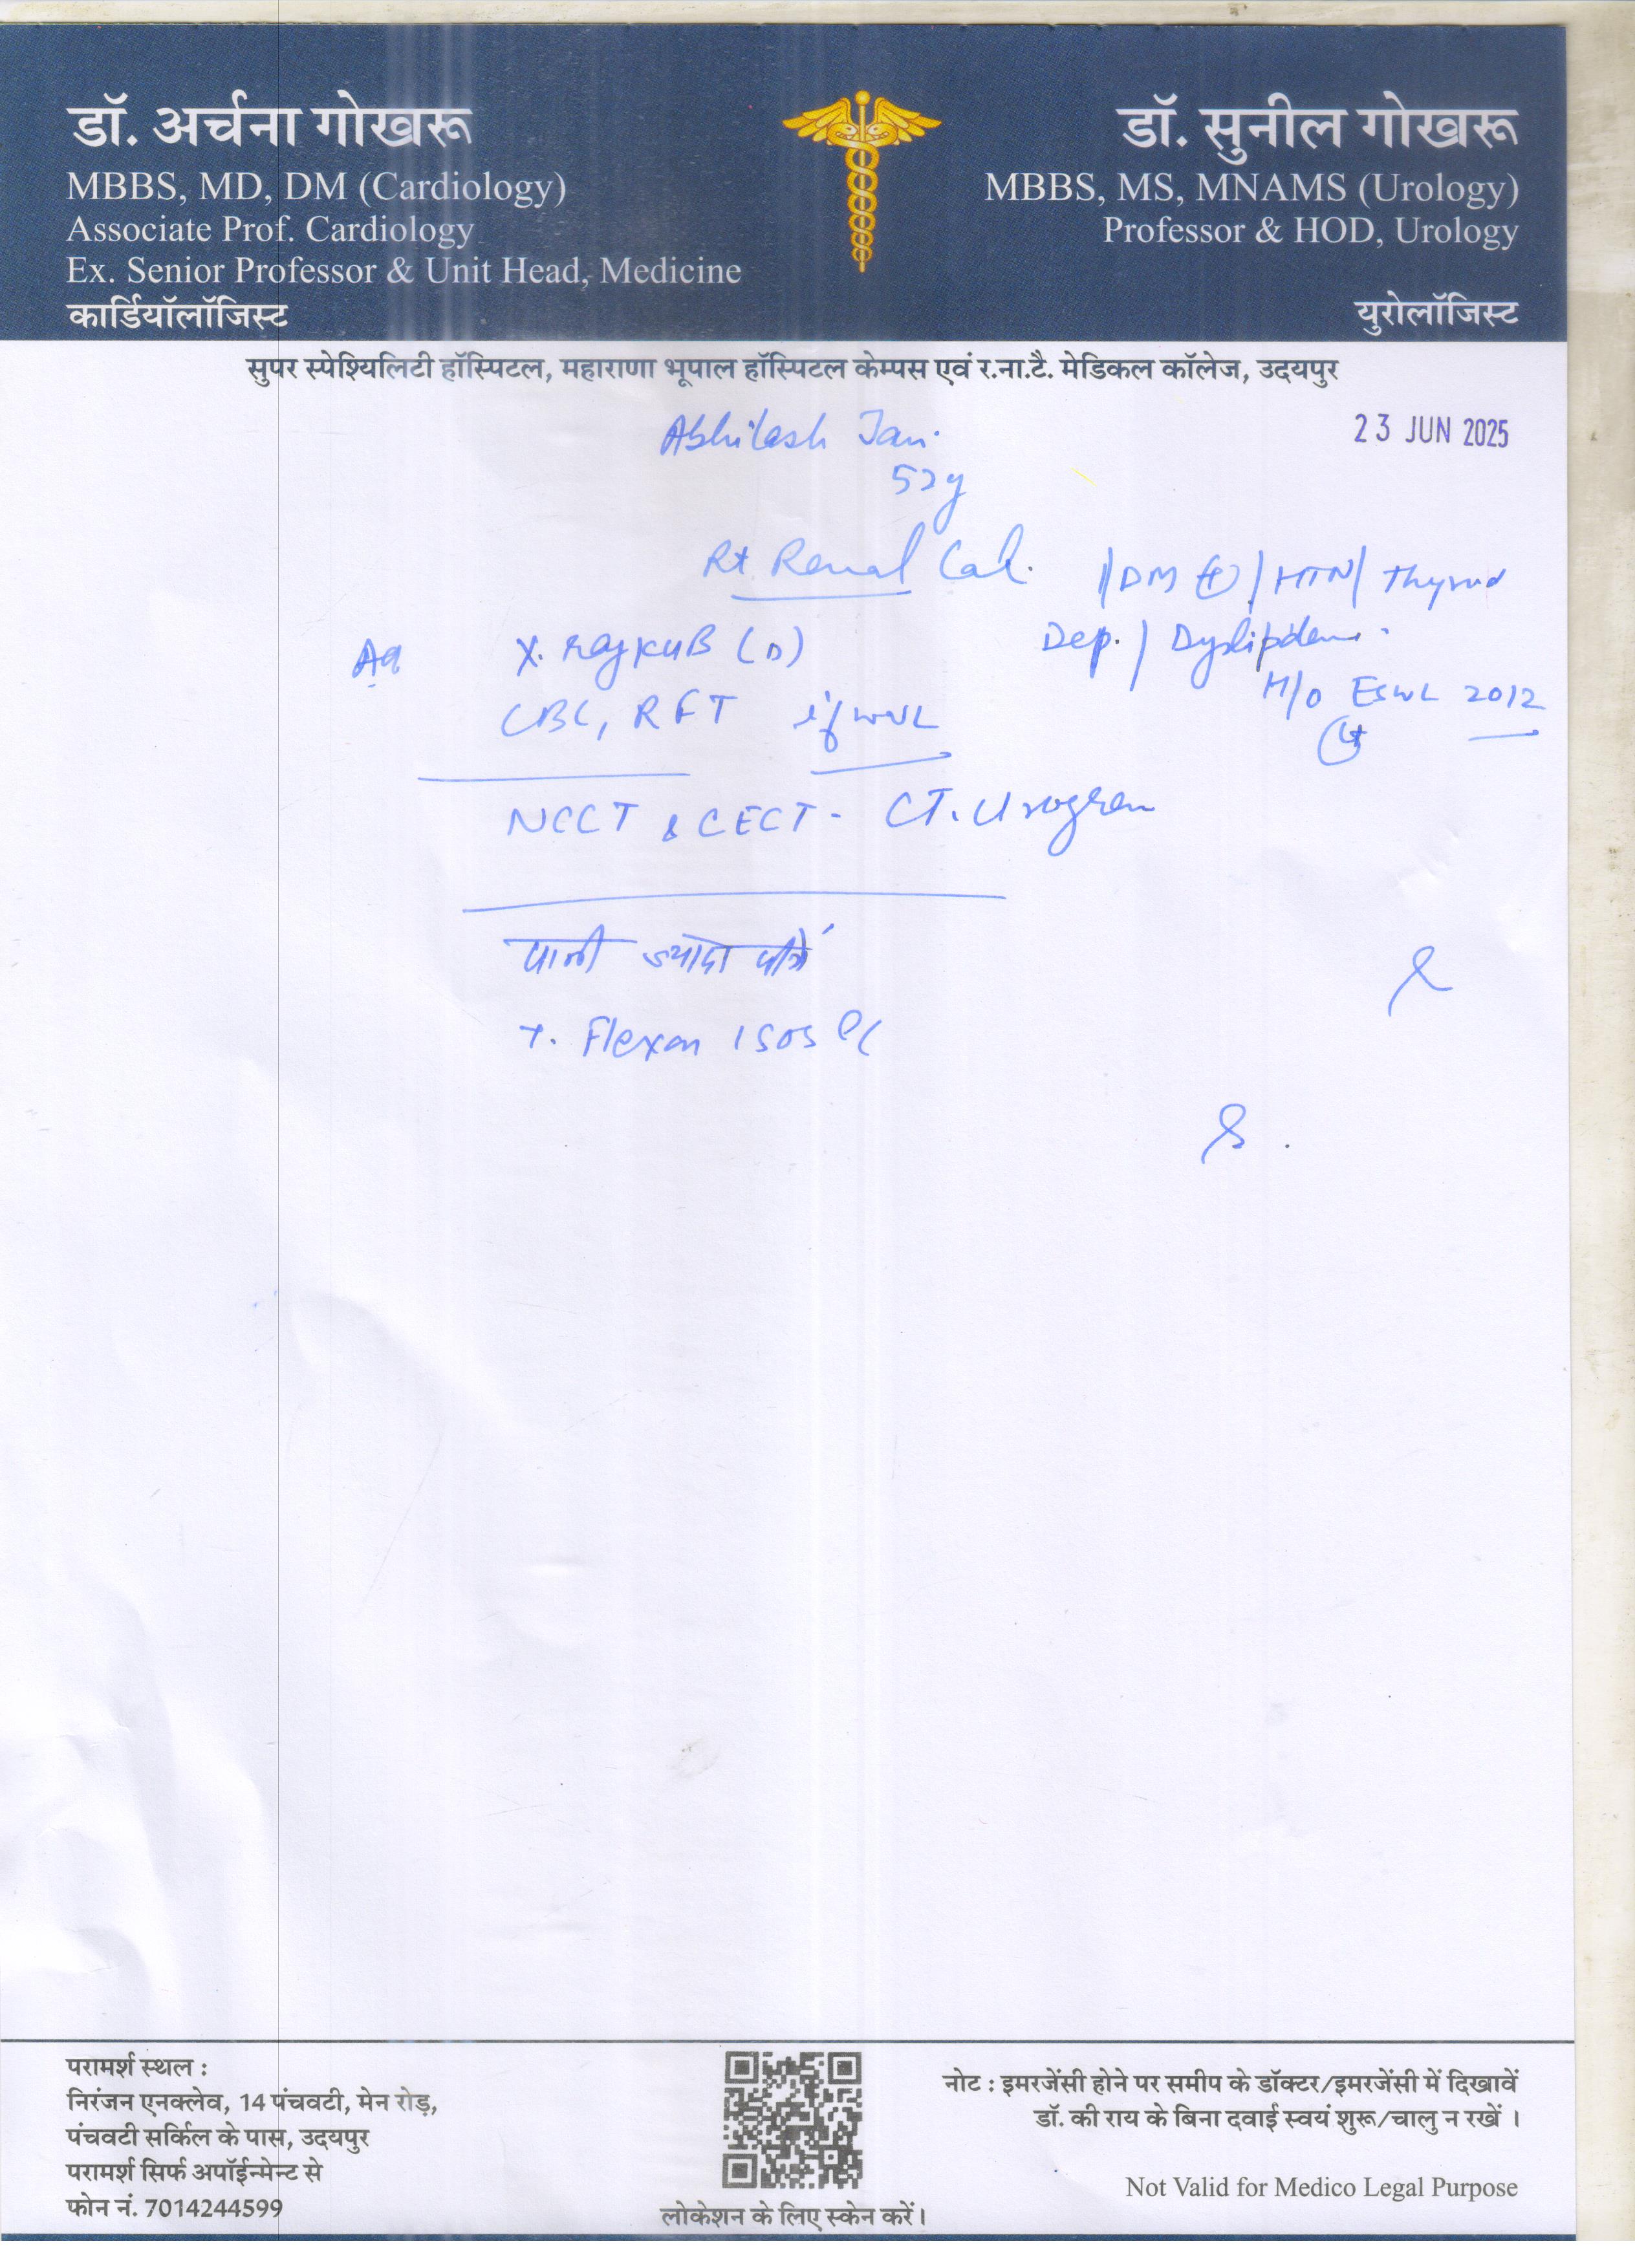 डॉ. अर्चना गोखरू
MBBS, MD, DM (Cardiology)
Associate Prof. Cardiology
Ex. Senior Professor & Unit Head, Medicine
कार्डियॉलॉजिस्ट
डॉ. सुनील गोखरू
MBBS, MS, MNAMS (Urology)
Professor & HOD, Urology
युरोलॉजिस्ट
सुपर स्पेश्यिलिटी हॉस्पिटल, महाराणा भूपाल हॉस्पिटल केम्पस एवं र.ना.टै. मेडिकल कॉलेज, उदयपुर
23 JUN 2025
Abhilash
52y
Rt Renal Cal.
/DM (+)/HTN/Thyroid
Dep./Dyslipidem.
H/o ESWL 2012
X.ray KUB (D)
CBC, RFT if WNL
NCCT & CECT - CT. Urogram
पानी ज्यादा पीवें
T. Flexon 1 SOS
परामर्श स्थल :
निरंजन एनक्लेव, 14 पंचवटी, मेन रोड़,
पंचवटी सर्किल के पास, उदयपुर
परामर्श सिर्फ अपॉईन्मेन्ट से
फोन नं. 7014244599
लोकेशन के लिए स्केन करें।
नोट : इमरजेंसी होने पर समीप के डॉक्टर/इमरजेंसी में दिखावें
डॉ. की राय के बिना दवाई स्वयं शुरू/चालु न रखें ।
Not Valid for Medico Legal Purpose